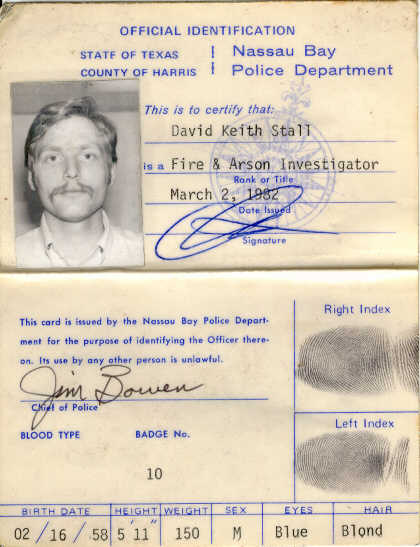 OFFICIAL IDENTIFICATION
STATE OF TEXAS
COUNTY OF HARRIS
Nassau Bay
Police Department
This is to certify that:
David Keith Stall
is a Fire & Arson Investigator
Rank or Title
March 2, 1982
Date Issued
Signature
This card is issued by the Nassau Bay Police Depart-
ment for the purpose of identifying the Officer there-
on. Its use by any other person is unlawful.
Jim Bowen
Chief of Police
BLOOD TYPE BADGE No.
10
Right Index
Left Index
BIRTH DATE HEIGHT WEIGHT SEX EYES HAIR
02 / 16 / 58 5'11" 150 M Blue Blond